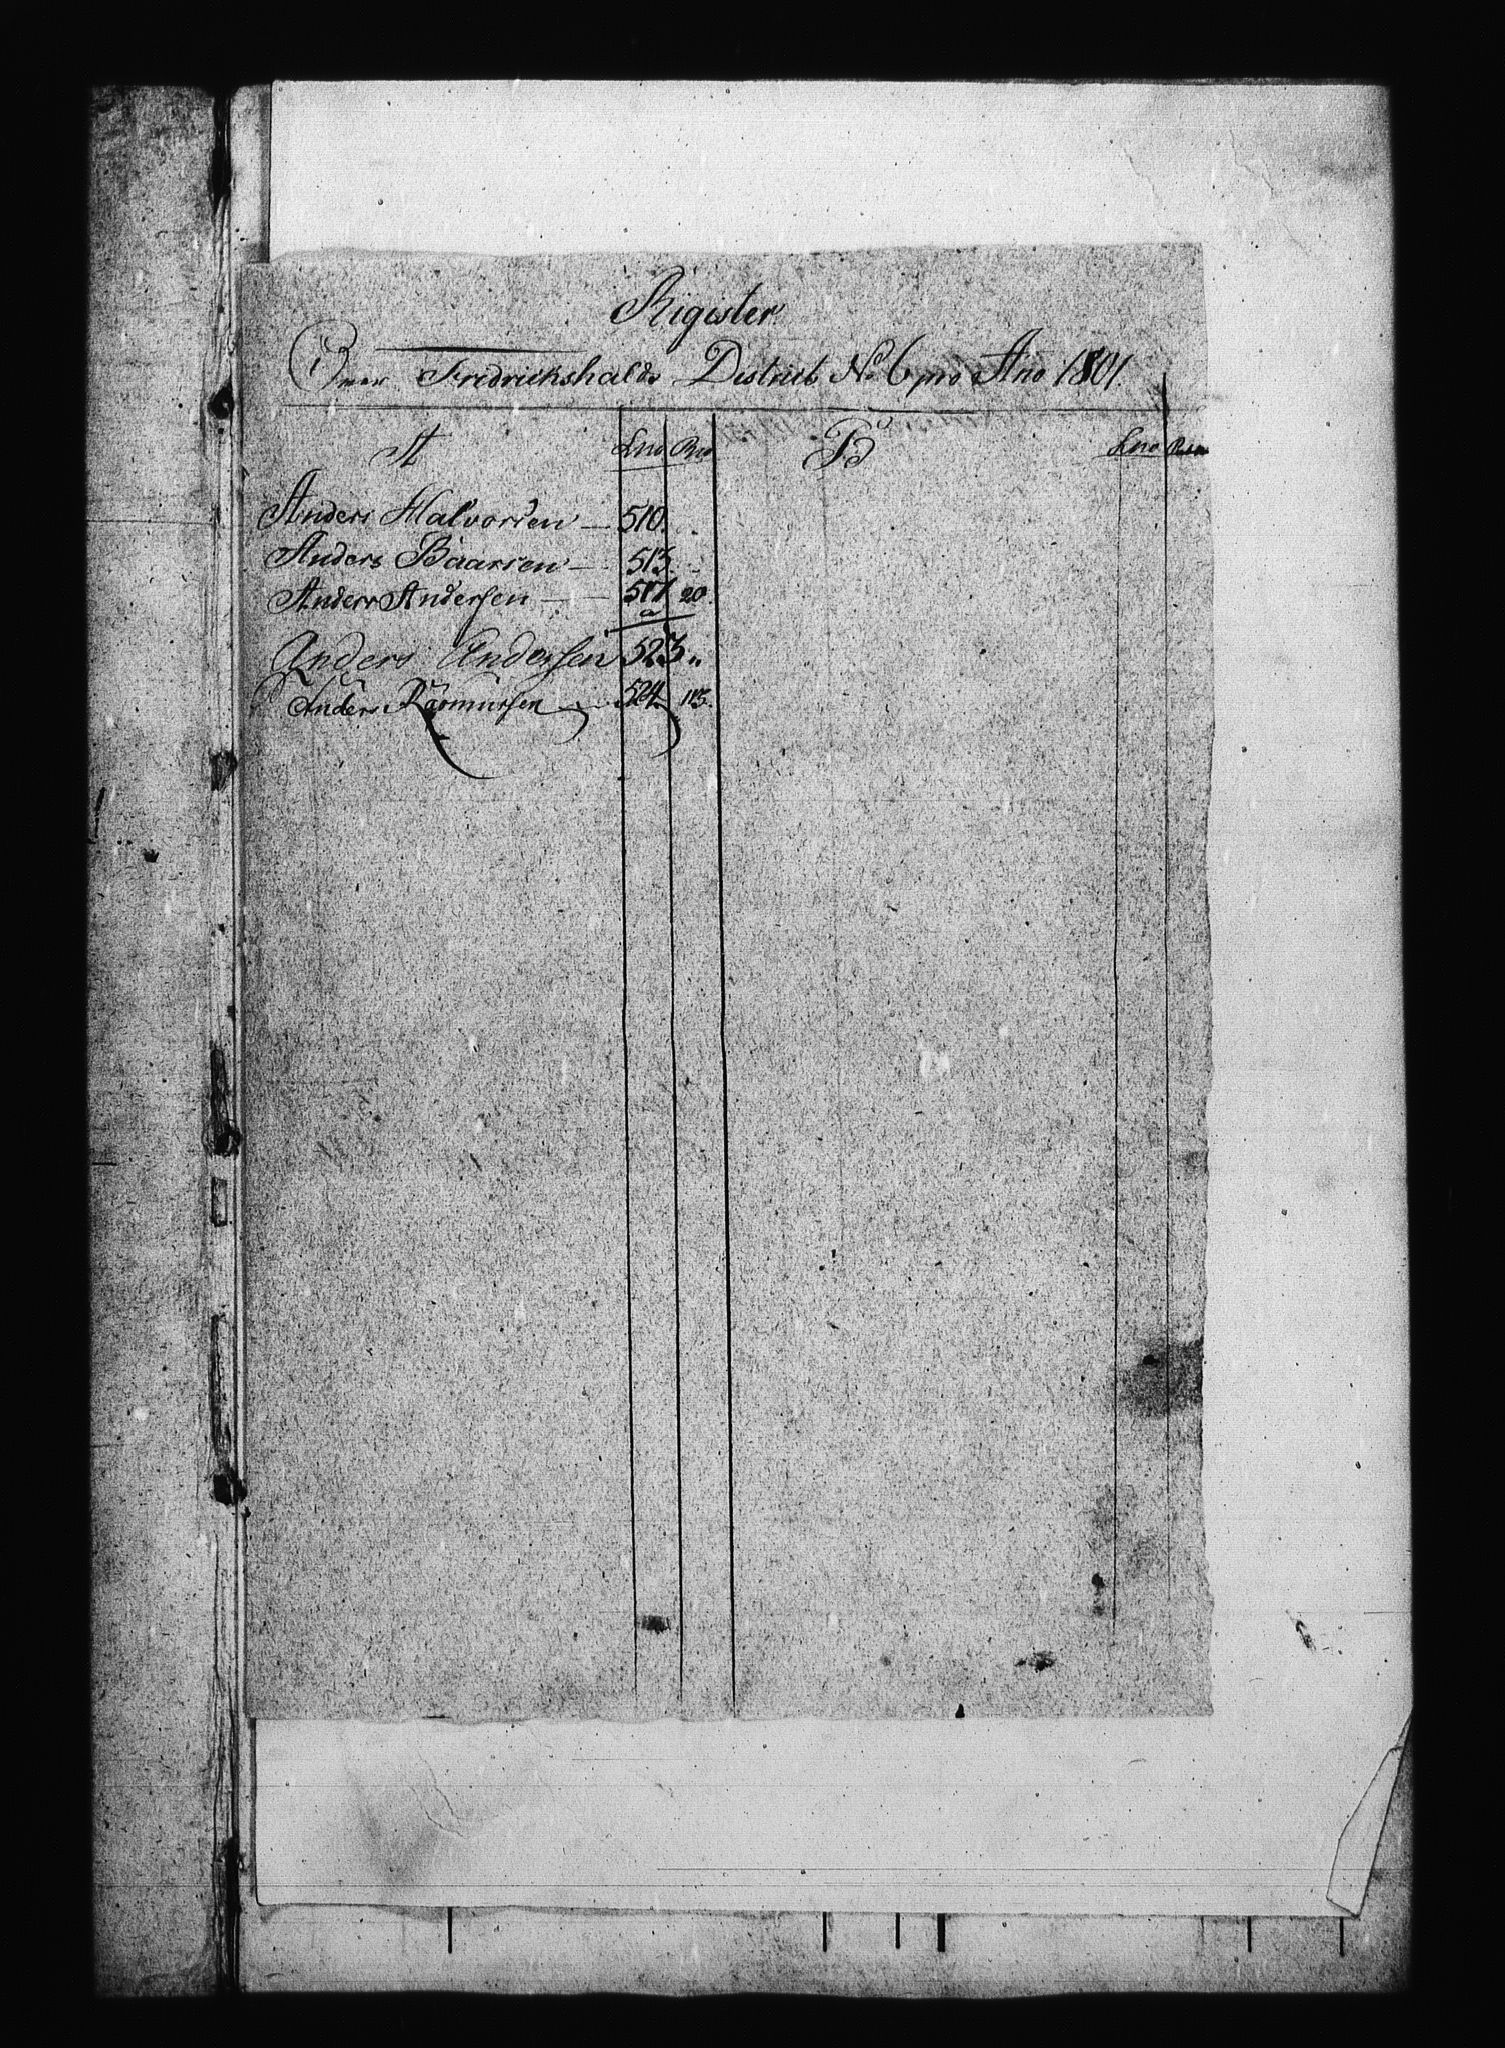 Rigister
Over Fredrickshalds District No 6 pro Ano 1801.
A Lno Rno B Lno
Anders Halvorsen — 510.
Anders Baarsen — 513.
Anders Andersen — 517 20.
a
Anders Andersen 523 "
Anders Rasmussen — 524. 113.